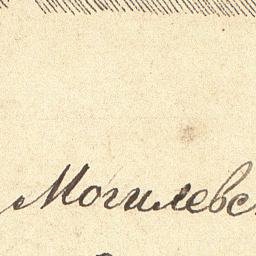 Могилевс